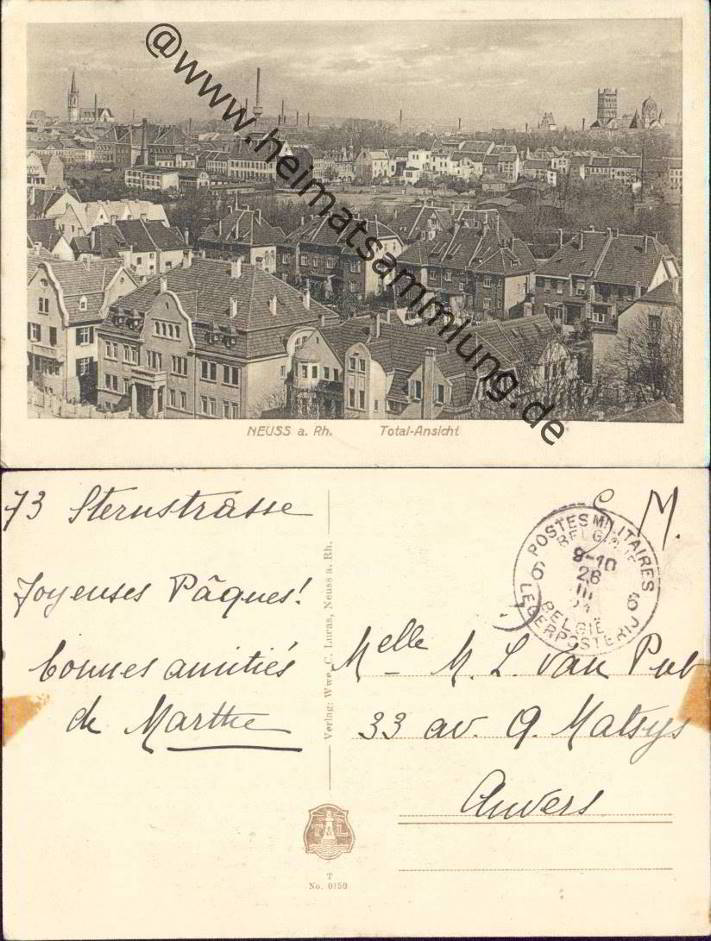 @www.heimatsammlung.de
NEUSS a. Rh. Total-Ansicht
73 Sternstrasse
Joyeuses Pâques!
bonnes amitiés
de Marthe
Verlag: Wwe. C. Lucas, Neuss a. Rh.
T L
T
No. 0150
S. M.
POSTES MILITAIRES
BELGIQUE
8-10
26
III
6 6
BELGIE
LEGERPOSTERIJ
Melle M. L. van Put
33 av. Q. Matsys
Anvers